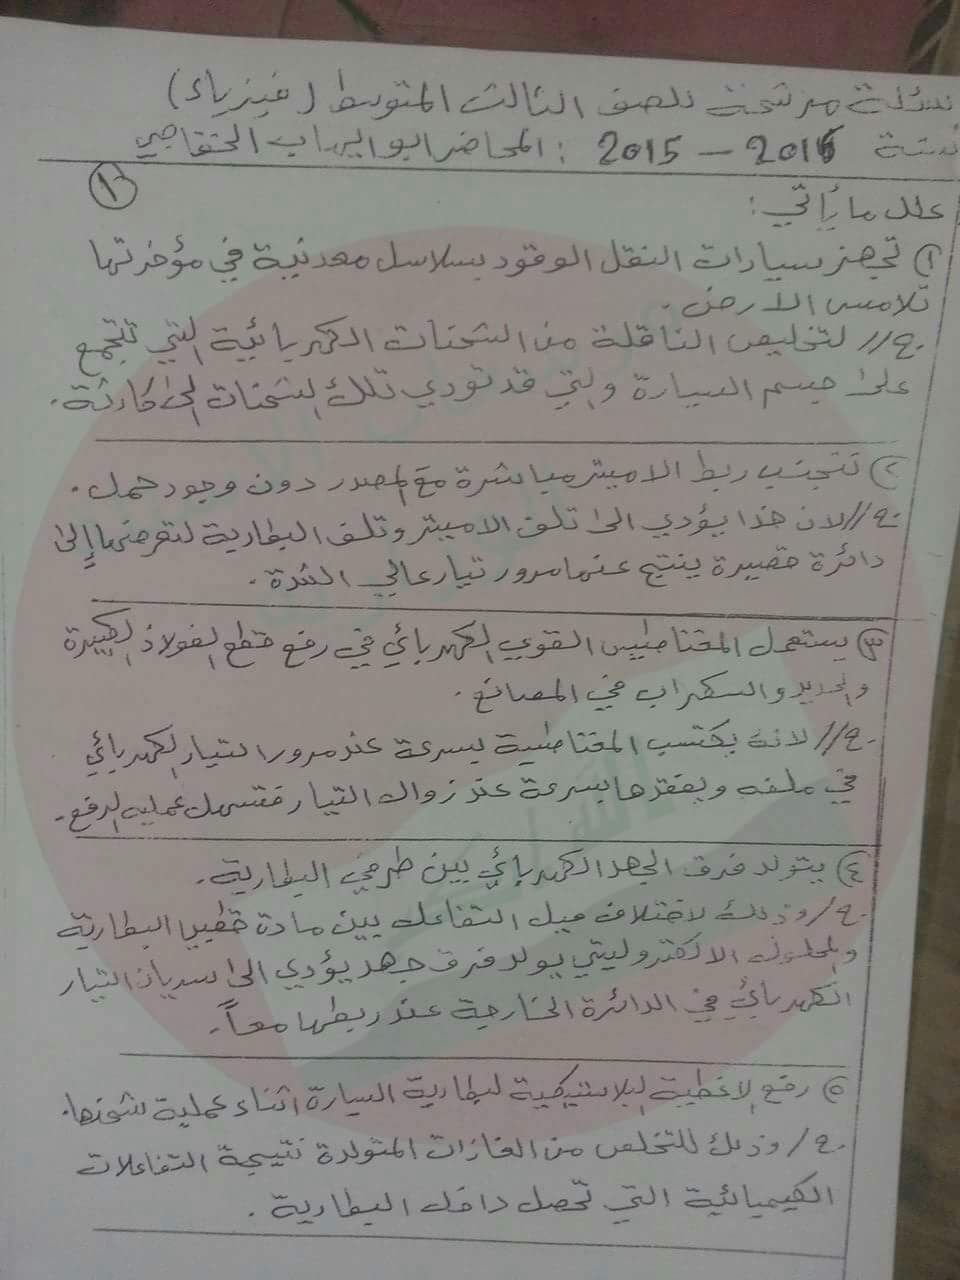 اسئلة مرشحة للصف الثالث المتوسط (فيزياء)
لسنة 2015 - 2016 : المحاضر ابو ايهاب الخفاجي
١
علل ما يأتي :
١ تجهز سيارات النقل الوقود بسلاسل معدنية في مؤخرتها
تلامس الارض .
ج// لتخليص الناقلة من الشحنات الكهربائية التي تتجمع
على جسم السيارة والتي قد تودي تلك الشحنات الى كارثة .
٢ تتجنب ربط الاميتر مباشرة مع المصدر دون وجود حمل .
ج// لان هذا يؤدي الى تلف الاميتر وتلف البطارية لتعرضها إلى
دائرة قصيرة ينتج عنها مرور تيار عالي الشدة .
٣ يستعمل المغناطيس القوي الكهربائي في رفع قطع الفولاذ الكبيرة
والحديد والسكراب في المصانع .
ج// لانه يكتسب المغناطيسية بسرعة عند مرور التيار الكهربائي
في ملفه ويفقدها بسرعة عند زوال التيار فتسهل عملية الرفع .
٤ يتولد فرق الجهد الكهربائي بين طرفي البطارية .
ج/ وذلك لاختلاف ميل التفاعل بين مادة قطبي البطارية
والمحلول الالكتروليتي يولد فرق جهد يؤدي الى سريان التيار
الكهربائي في الدائرة الخارجية عند ربطها معاً .
٥ رفع الاغطية البلاستيكية لبطارية السيارة اثناء عملية شحنها .
ج/ وذلك للتخلص من الغازات المتولدة نتيجة التفاعلات
الكيميائية التي تحصل داخل البطارية .